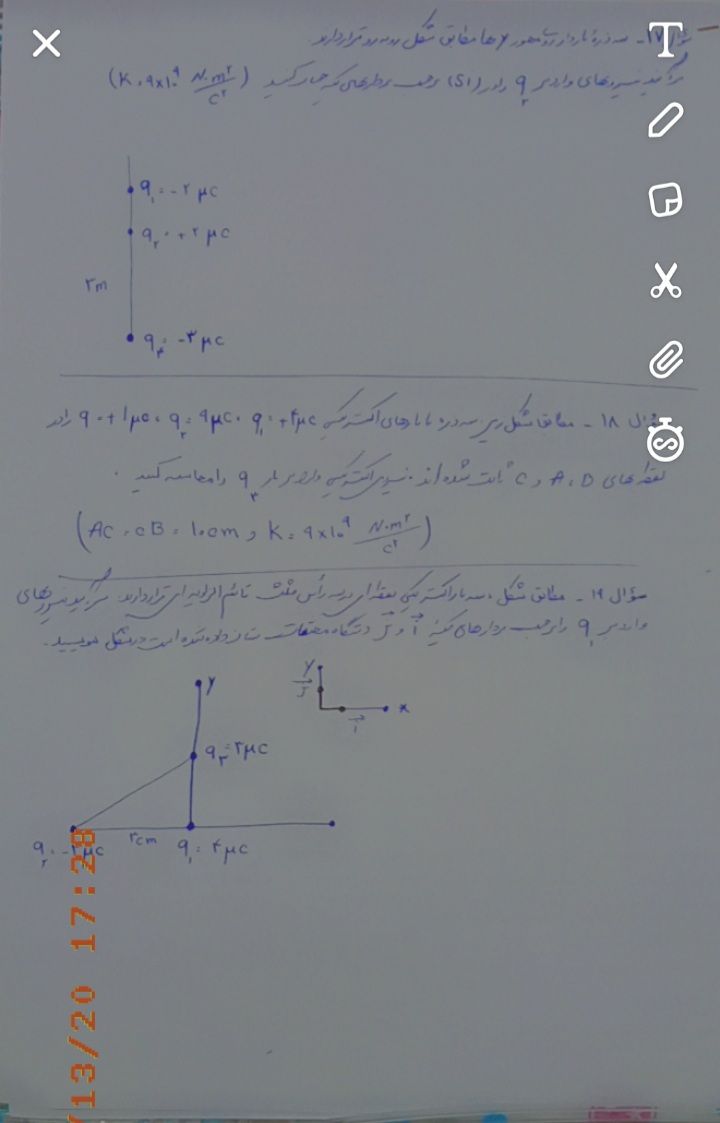 سوال ۱۷ - سه ذره باردار روی محور y ها مطابق شکل روبه رو قرار دارند
برآیند نیروهای وارد بر q۲ را در (SI) برحسب بردارهای یکه حساب کنید (K = ۹×۱۰^۹ N.m^۲/C^۲)
q۱ = -۲ μC
q۲ = +۲ μC
۲m
q۳ = -۳ μC
سوال ۱۸ - مطابق شکل زیر سه ذره با بارهای الکتریکی q۱ = +۴μC، q۲ = ۹μC، q = +۱μC را در
نقطه های A، B و C ثابت شده اند. نیروی الکتریکی وارد بر بار q۳ را محاسبه کنید.
(AC = CB = ۱۰cm و K = ۹×۱۰^۹ N.m^۲/C^۲)
سوال ۱۹ - مطابق شکل، سه بار الکتریکی نقطه ای در سه رأس مثلث قائم الزاویه ای قرار دارند. برآیند نیروهای
وارد بر q۱ را برحسب بردارهای یکه i و j دستگاه مختصات نشان داده شده است در شکل بنویسید.
y
j
x
i
y
q۳ = ۲μC
۳cm
q۲ = -۲μC
q۱ = ۴μC
/13/20 17:28
T